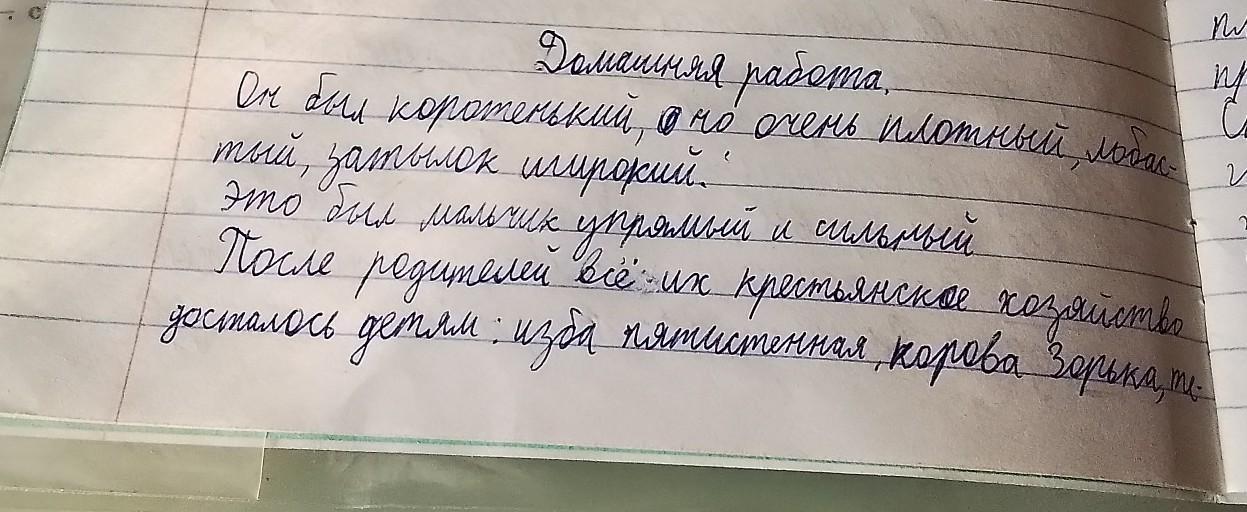 Домашняя работа.
Он был коротенький, но очень плотный, лобас-
тый, затылок широкий.
Это был мальчик упрямый и сильный
После родителей всё их крестьянское хозяйство
досталось детям: изба пятистенная, корова Зорька, те-